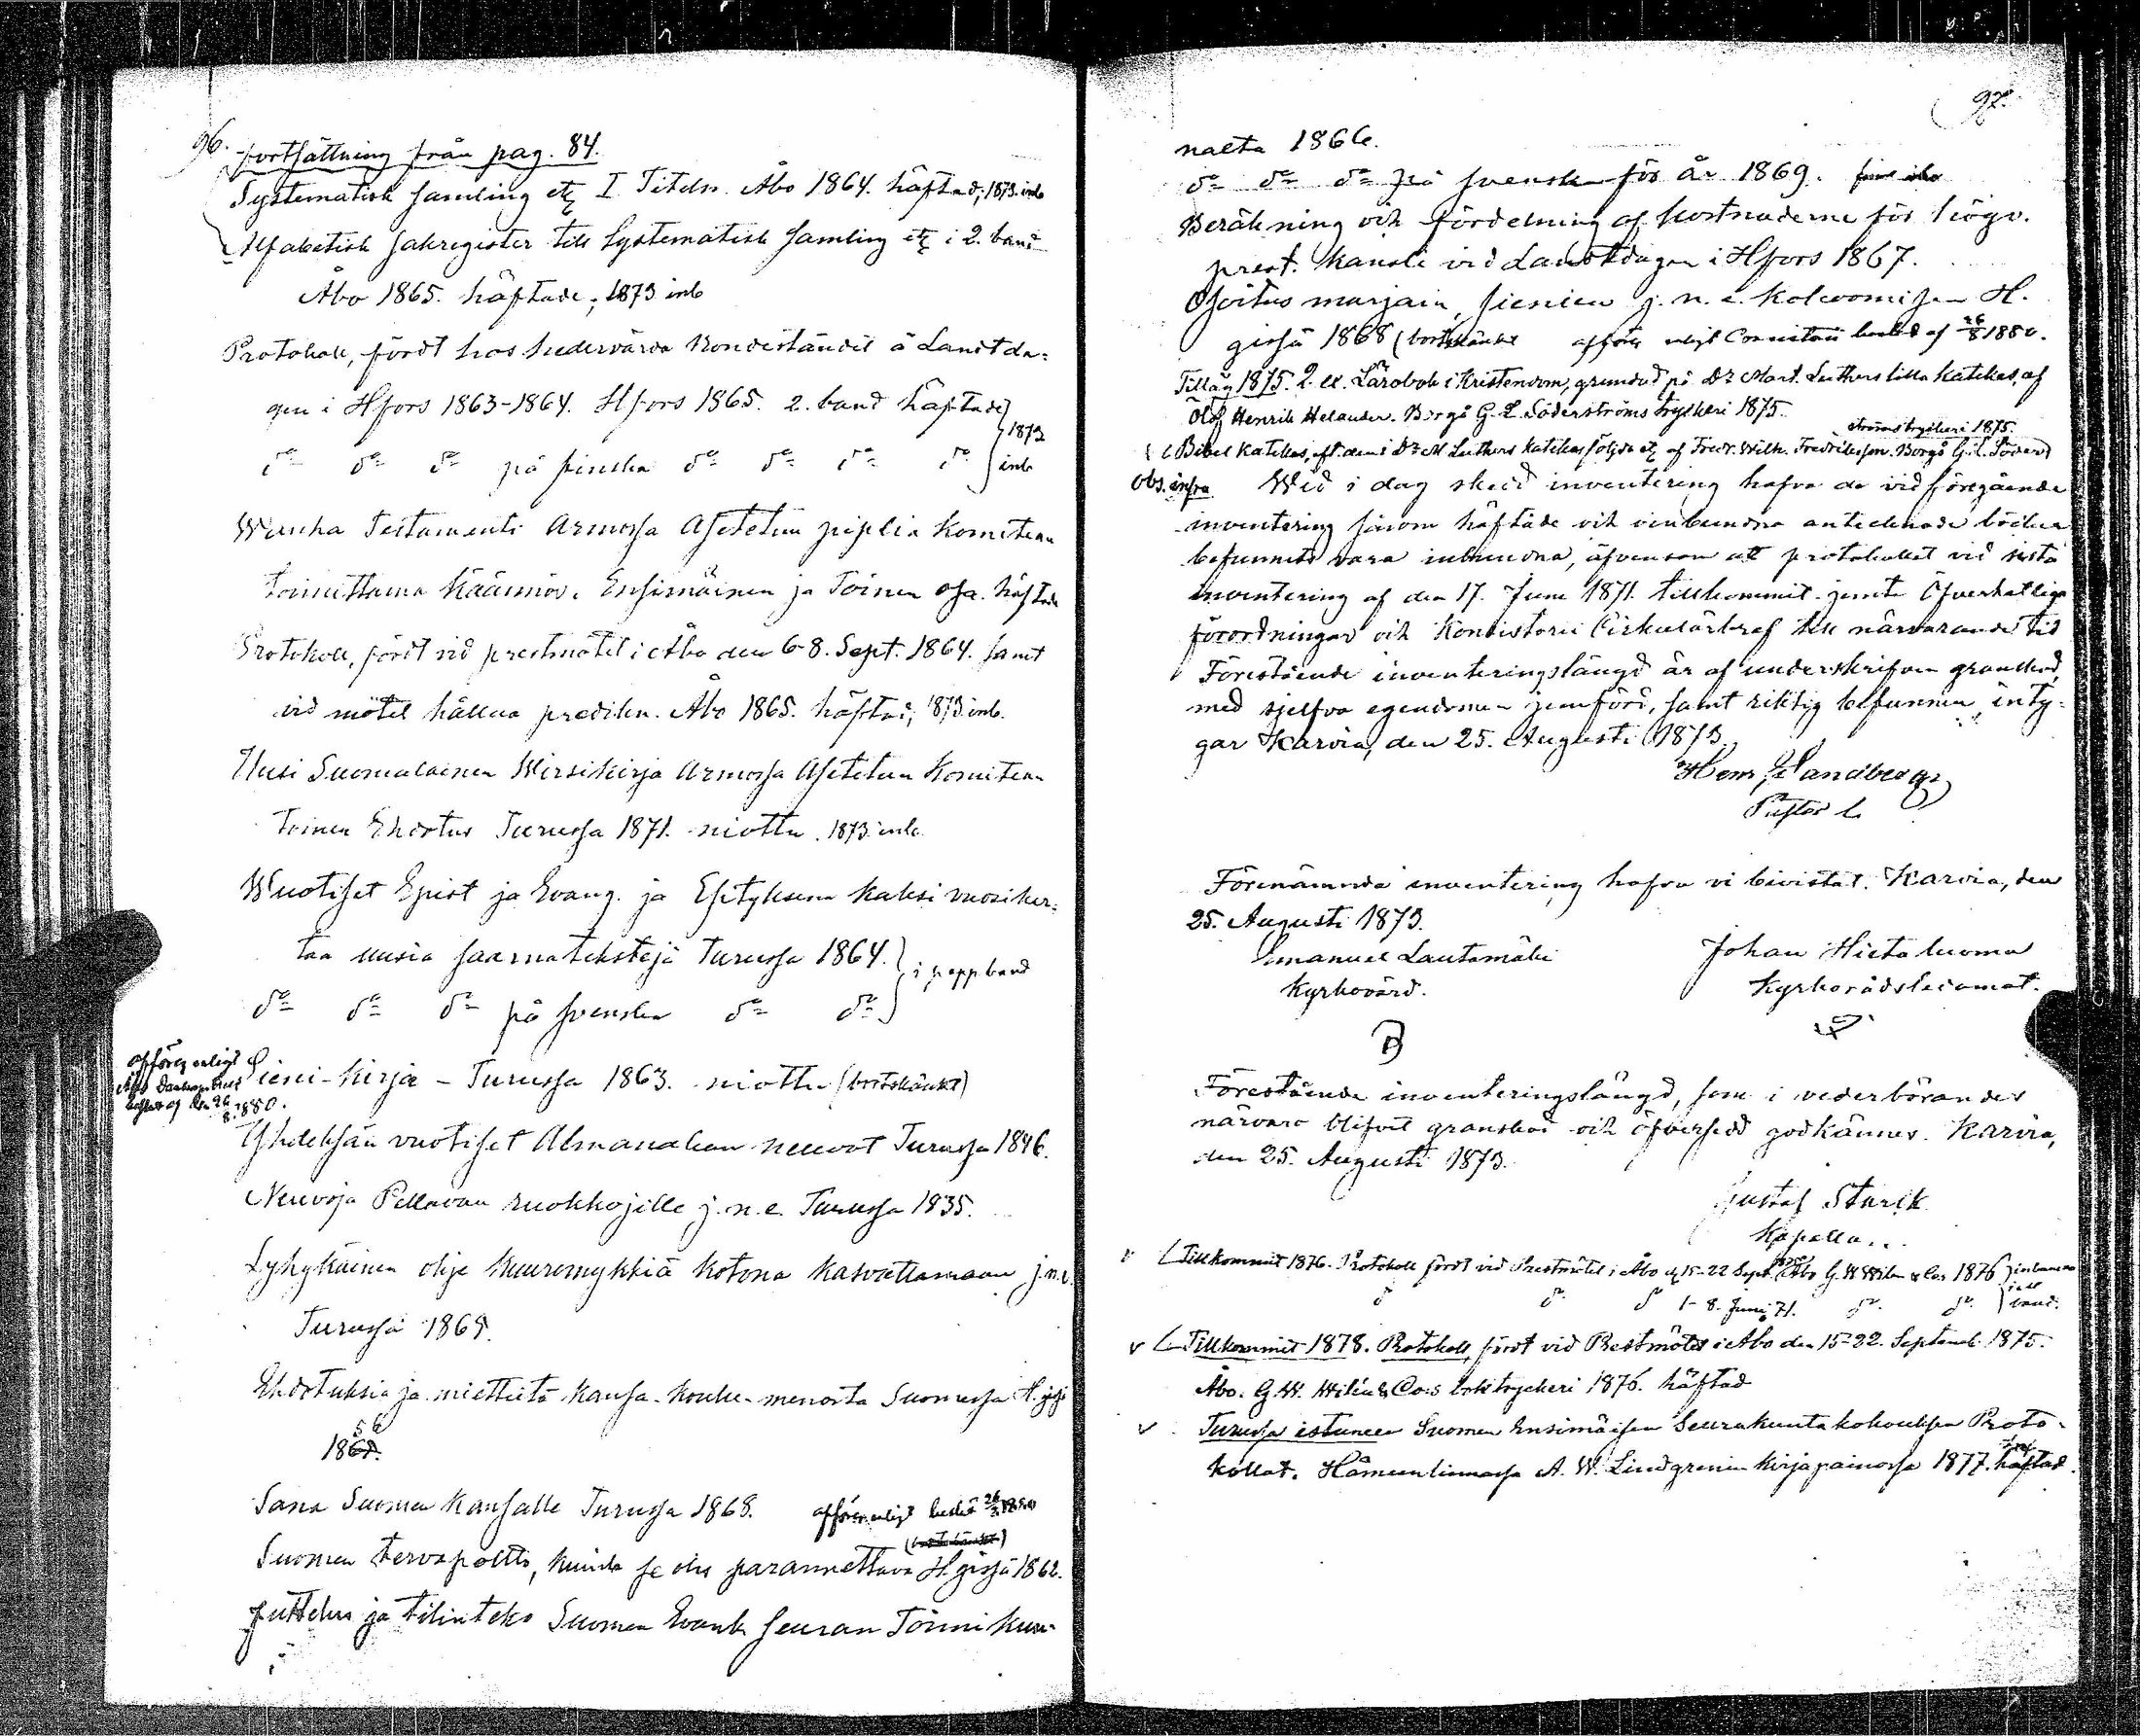 96. fortsättning från pag. 84.
Systematisk samling etc I Titeln. Åbo 1864. häftad; 1873 inb
Alfabetisk sakregister till Systematisk samling etc i 2. band
Åbo 1865. häftade; 1873 inb
Protokoll, fördt hos hedervärda Bondeståndet å Landtda-
gen i Hfors 1863-1864. Hfors 1865. 2. band häftade } 1873
do do do på finska do do do do } inb
Wanha Testamenti Armossa Asetetun piplia Komitean
toimittama Käännös. Ensimäinen ja Toinen osa. häftade
Protokoll, fördt vid prestmötet i Åbo den 6-8. Sept. 1864. samt
vid mötet hållna predikn. Åbo 1865. häftad; 1873 inb.
Uusi Suomalainen Wirsikirja Armossa Asetetun Komitean
Toinen Ehdotus Turussa 1871. niottu. 1873 inb.
Wuotiset Epist ja Evang. ja Esityksenä kaksi vuosiker-
taa uusia saarnatekstejä Turussa 1864. } i pappband
do do do på svenska do do }
afföres enligt
beslut af den 26/8 1880.
Sieni-kirja - Turussa 1863. niottu (bortskänkt)
Yhdeksän vuotiset Almanakan neuvot Turussa 1846.
Neuvoja Pellavan ruokkojille j.n.e. Turussa 1835.
Lyhykäinen ohje kuuromykkiä kotona kasvattamaan j.n.e.
Turussa 1865.
Ehdotuksia ja mietteitä kansa-koulu-menosta Suomessa H:gissä
56
186
Sana Suomen kansalle Turussa 1868. afföres enligt beslut 26/8 1880
(bortskänkt)
Suomen tervapoltto, kuinka se olis parannettava H:gissä 1862.
Juttelus ja tilinteko Suomen Evank seuran Toimikun-
97.
nalta 1866.
do do do på svenska för år 1869.
Beräkning och fördelning af kostnaderne för högv.
prest. kansli vid Landtdagen i Hfors 1867.
Osoitus marjain, sienien j.n.e. kokoomisen H.
gissä 1868 (bortskänkt afföres enligt Consistorii beslut af 26/8 1880.
Tilläg 1875. 2. ex. Lärobok i Kristendom, grundad på Dr Mart. Luthers lilla katekes, af
Olof Henrik Helander. Borgå G. L. Söderströms tryckeri 1875.
ströms tryckeri 1875.
Bibel Katekes, eft. den i Dr M Luthers katekes följda etc af Fredr. Wilh. Fredriksson. Borgå G. L. Söder-
Obs. infra Wid i dag skedd inventering hafva de vid föregående
inventering såsom häftade och oinbundna antecknade böcker
befunnits vara inbundna, äfvensom att protokollet vid sista
inventering af den 17. Juni 1871. tillkommit jemte Öfverhetliga
förordningar och Konsistorii Cirkulärbref till närvarande tid
Förestående inventeringslängd är af underskrifven granskad,
med sjelfva egendomen jemförd, samt riktig befunnen, inty-
gar Karvia, den 25. Augusti 1873.
Hem, Sandberg
Pastor l.
Förenämnda inventering hafva vi bevistat. Karvia, den
25. Augusti 1873.
Emanuel Lautamäki Johan Hietaluoma
Kyrkovärd. Kyrkorådsledamot.
Förestående inventeringslängd, som i vederbörandes
närvaro blifvit granskad och öfversedd godkännes. Karvia,
den 25. Augusti 1873.
Gustaf Starck
Kapellan.
v Tillkommit 1876. Protokoll fördt vid Prestmötet i Åbo d. 15-22 Sept. 1875 Åbo G. W Wilén & Co 1876 } inbundna
do do do 1-8. Juni 71. do do } i ett band.
v Tillkommit 1878. Protokoll, fördt vid Prestmötet i Åbo den 15-22. Septemb. 1875.
Åbo. G. W. Wilén & Co:s boktryckeri 1876. häftad
v Turussa istuneen Suomen Ensimäisen Seurakuntakokouksen Proto-
kollat. Hämeenlinnassa A. W. Lindgrenin kirjapainossa 1877. häftad.